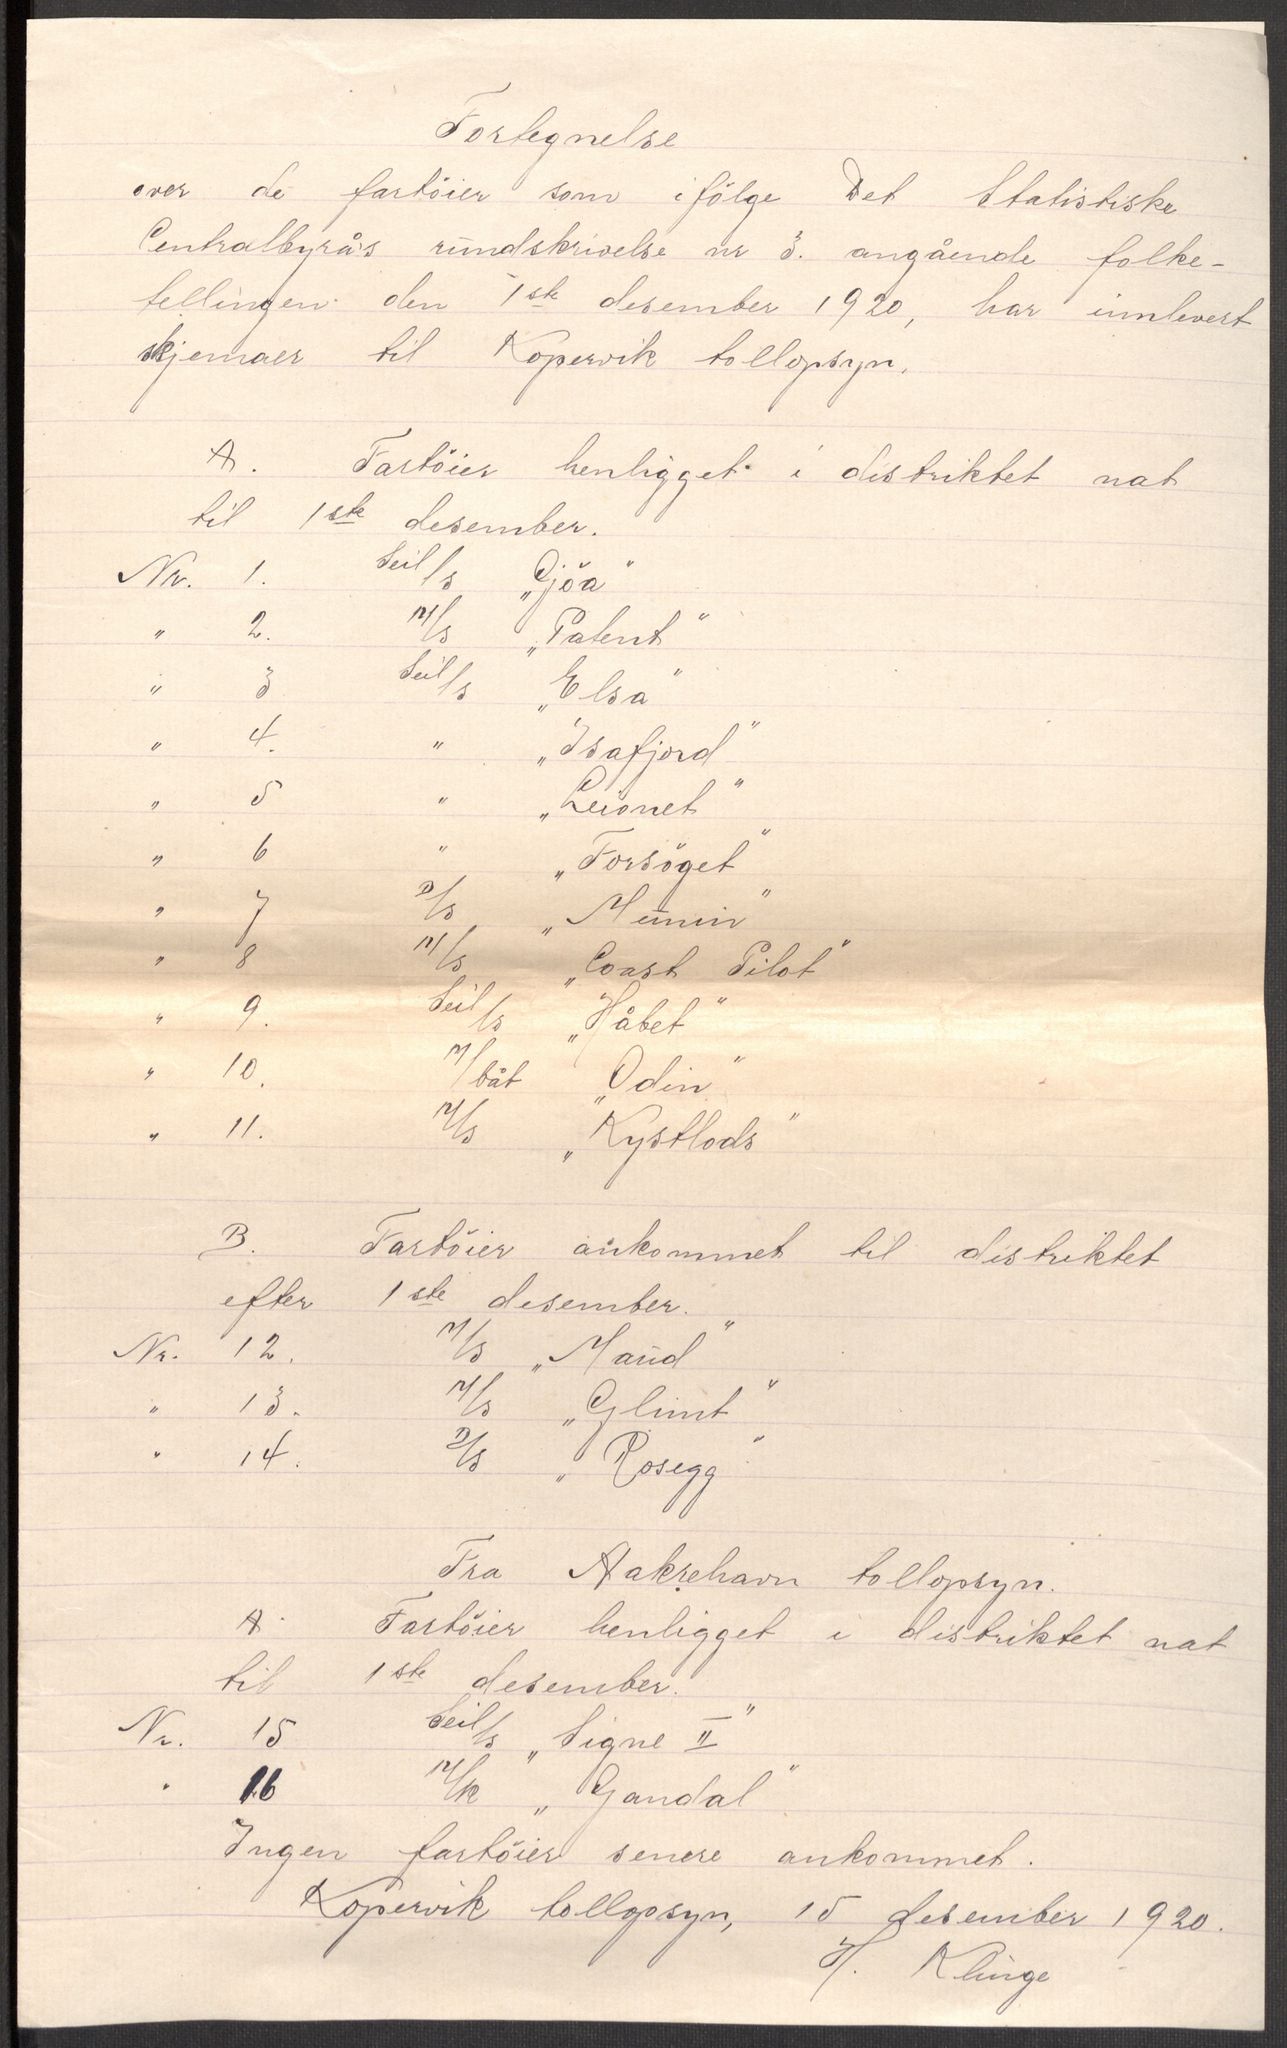 Fortegnelse
over de fartöier som ifölge Det Statistiske
Centralbyrå's rundskrivelse nr 3. angående folke-
tellingen den 1ste desember 1920, har innlevert
skjemaer til Kopervik tollopsyn.
A. Fartöier henligget i distriktet nat
til 1ste desember.
Nr. 1. Seil/s „Gjöa"
" 2. M/s „Patent"
" 3 Seil/s „Elsa"
" 4. " „Isafjord"
" 5 " „Leionet"
" 6 " „Forsöget"
" 7 D/s „Munin"
" 8 M/s „Coast Pilot"
" 9. Seil/s „Håbet"
" 10. M/båt „Odin"
" 11. M/s „Kystlods"
B. Fartöier ankommet til distriktet
efter 1ste desember.
Nr. 12. M/s „Maud"
" 13. M/s „Glimt"
" 14. D/s „Rosegg"
Fra Aakrehavn tollopsyn.
A. Fartöier henligget i distriktet nat
til 1ste desember.
Nr. 15 Seil/s „Signe II"
" 16 M/k „Gandal"
Ingen fartöier senere ankommet.
Kopervik tollopsyn, 15 desember 1920.
H. Klinge